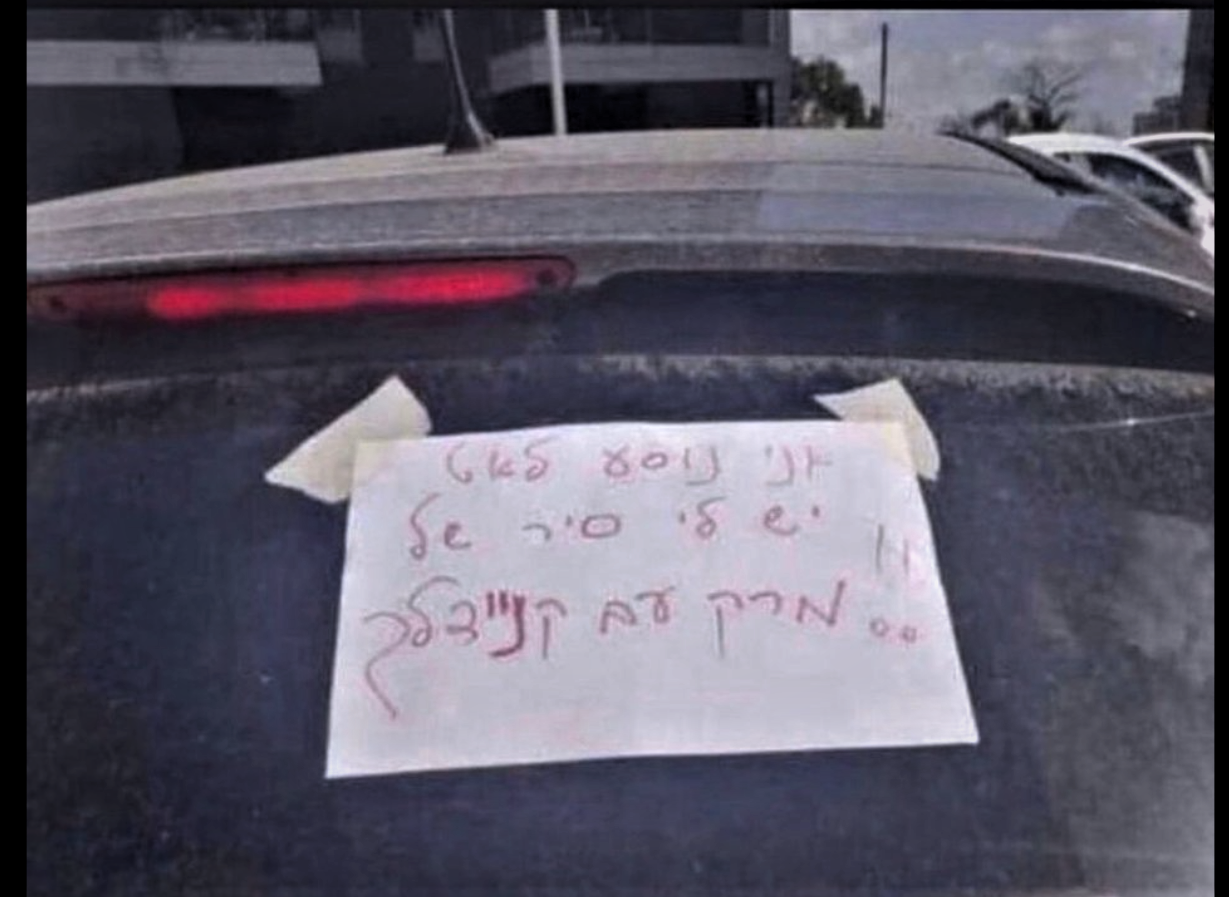 אני נוסע לאט
יש לי סיר של
מרק עם קניידלך..